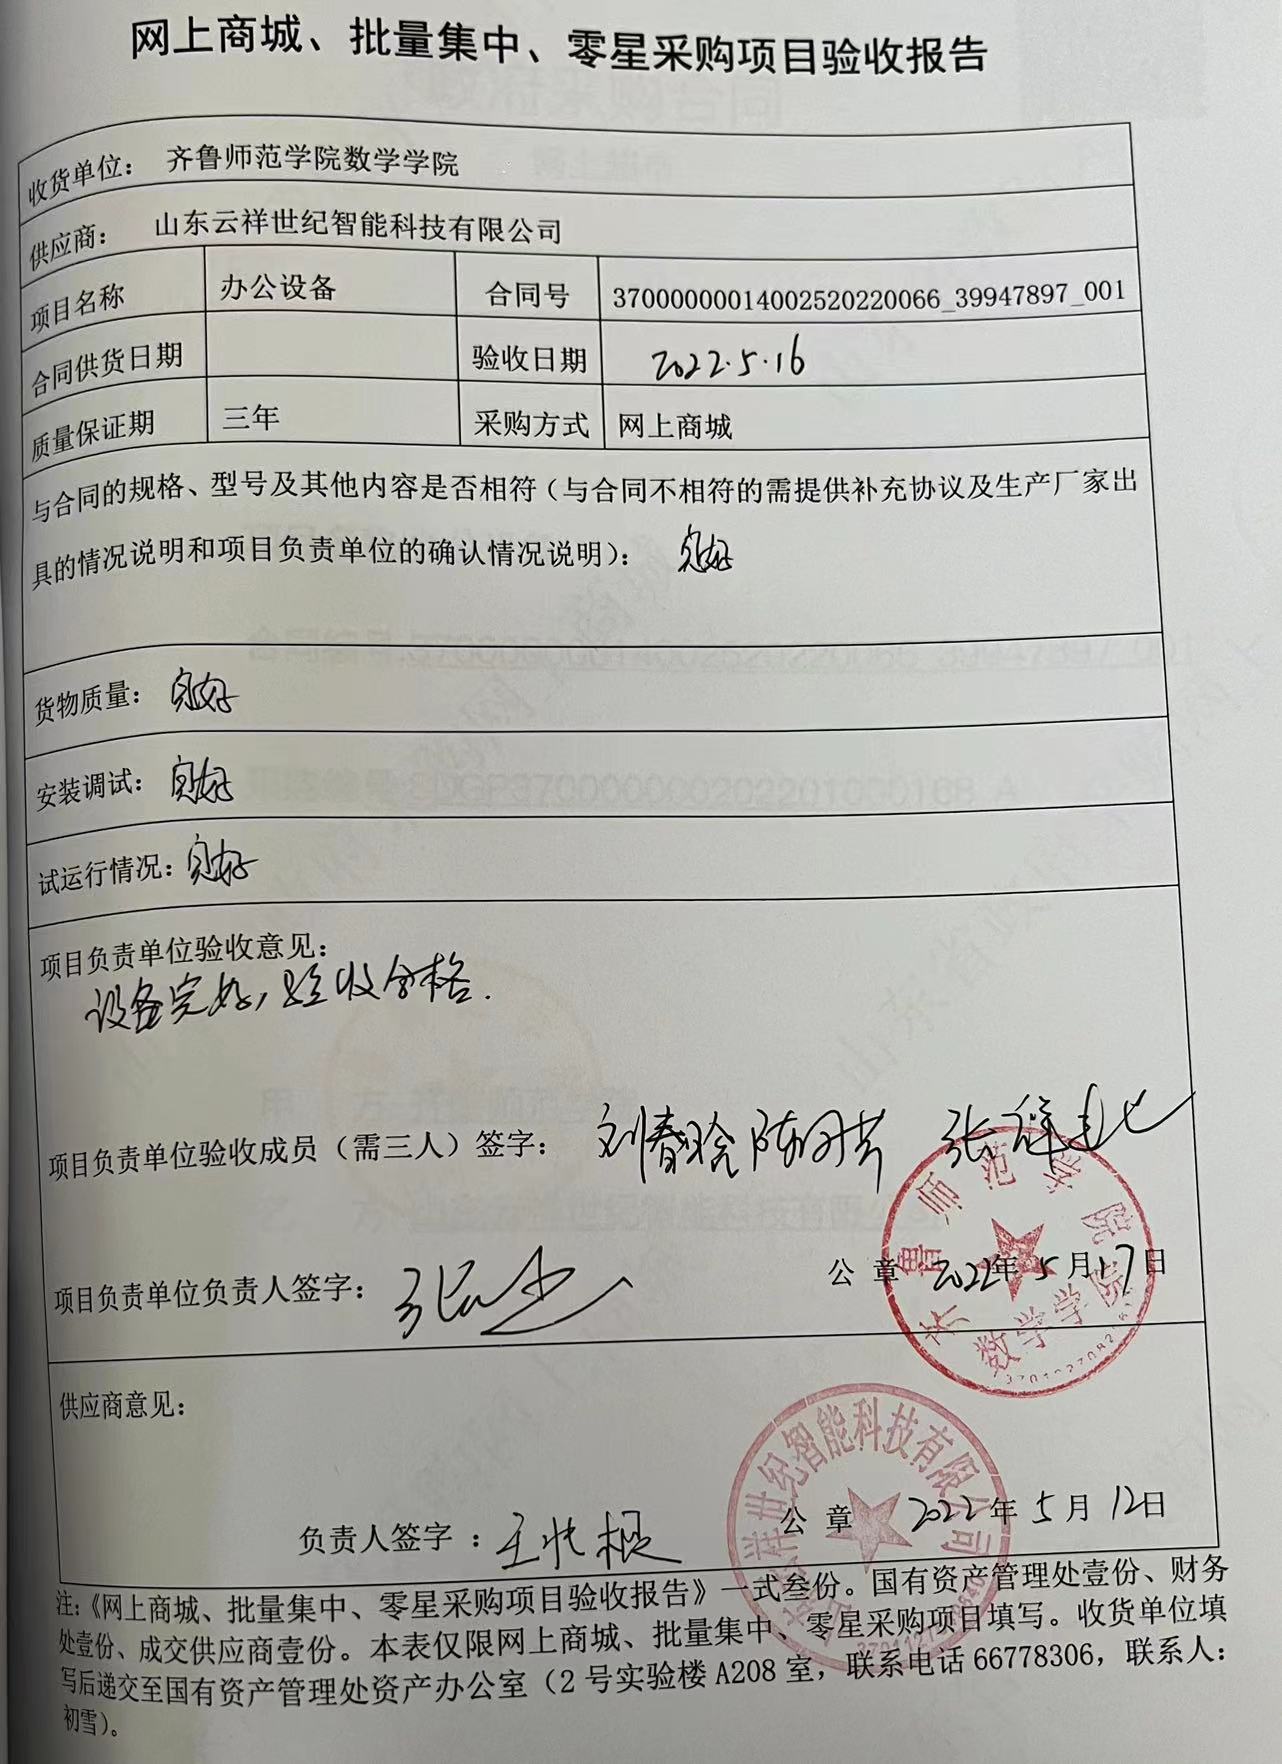 网上商城、批量集中、零星采购项目验收报告
收货单位： 齐鲁师范学院数学学院
供应商： 山东云祥世纪智能科技有限公司
项目名称 办公设备 合同号 37000000014002520220066_39947897_001
合同供货日期 验收日期 2022.5.16
质量保证期 三年 采购方式 网上商城
与合同的规格、型号及其他内容是否相符（与合同不相符的需提供补充协议及生产厂家出
具的情况说明和项目负责单位的确认情况说明）： 完好
货物质量： 完好
安装调试： 完好
试运行情况： 完好
项目负责单位验收意见：
设备完好，验收合格.
项目负责单位验收成员（需三人）签字：
项目负责单位负责人签字： 公章 2022年5月17日
齐鲁师范学院
数学学院
供应商意见：
负责人签字： 公章 2022年5月12日
云祥世纪智能科技有限公司
注：《网上商城、批量集中、零星采购项目验收报告》一式叁份。国有资产管理处壹份、财务
处壹份、成交供应商壹份。本表仅限网上商城、批量集中、零星采购项目填写。收货单位填
写后递交至国有资产管理处资产办公室（2号实验楼A208室，联系电话66778306，联系人：
初雪）。